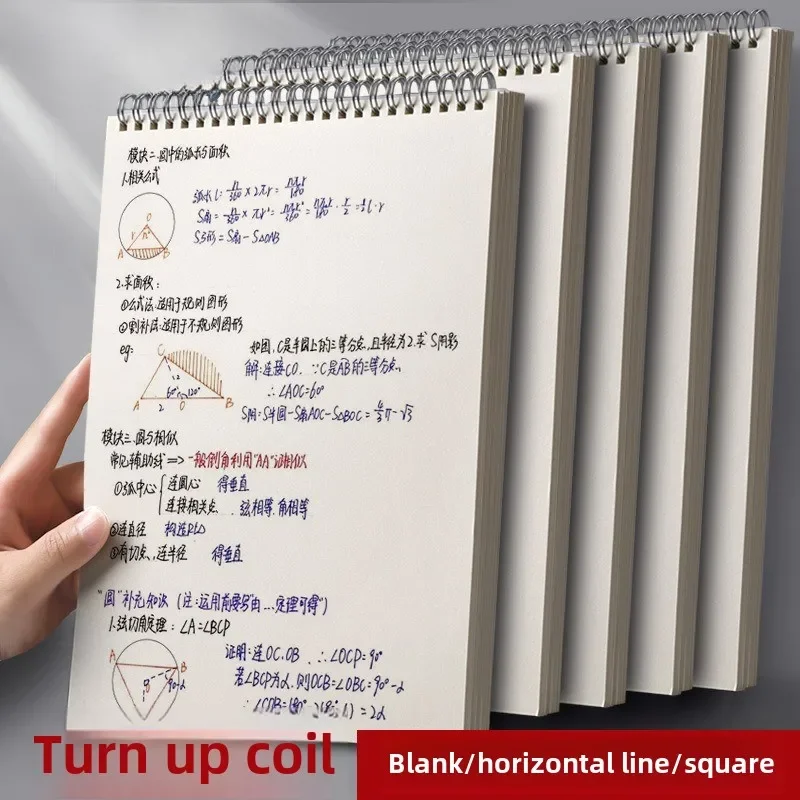 模块二.圆中的弧长与面积
1.相关公式
弧长l=n/360×2πr=nπr/180
S扇=n/360×πr²=nπr²/360=nπr/180·r/2=½l·r
S弓形=S扇-S△OAB
O
r n°
A B
2.求面积:
①公式法:适用于规则图形
②割补法:适用于不规则图形
eg:
如图,C是半圆上的三等分点,且半径为2.求S阴影
解:连接CO.∵C是AB的三等分点
∴∠AOC=60°
S阴=S半圆-S扇AOC-S△BOC=π-√3
C
60° 120°
A 2 O B
模块三.圆与相似
常见辅助线=>一般倒角利用"AA"证相似
①弧中心 连圆心 得垂直
连接相关点 弦相等.角相等
②连直径 构造Rt△
③有切点,连半径 得垂直
"圆"补充知识(注:运用前要写"由...定理可得")
1.弦切角定理:∠A=∠BCP
证明:连OC.OB.∴∠OCP=90°
若∠BCP为α.则∠OCB=∠OBC=90°-α
∴∠COB=180°-=2α
A B
90-α
Turn up coil
Blank/horizontal line/square